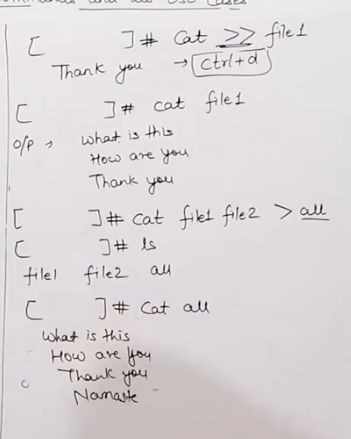 Commands and its Use Cases
[ ]# Cat >> file1
Thank you → Ctrl+d
[ ]# cat file1
O/P → What is this
How are you
Thank you
[ ]# cat file1 file2 > all
[ ]# ls
file1 file2 all
[ ]# Cat all
What is this
How are you
Thank you
Namaste